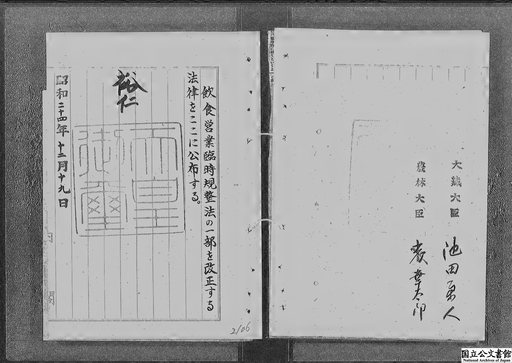 飲食営業臨時規整法の一部を改正する
法律をここに公布する。
裕仁
天皇
御璽
昭和二十四年十二月十九日
内閣
2106
大蔵大臣
池田勇人
農林大臣
国立公文書館
National Archives of Japan